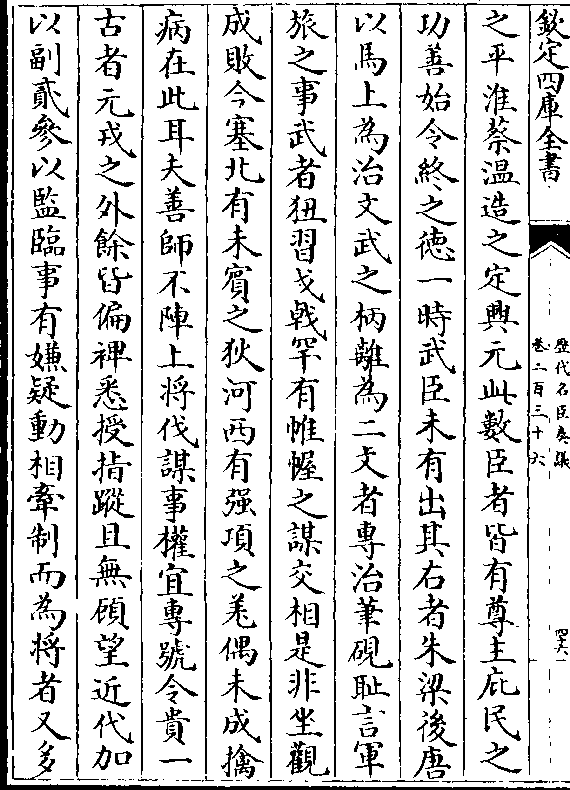 欽定四庫全書
歷代名臣奏議
卷二百三十六
之平淮蔡溫造之定興元此數臣者皆有尊主庇民之
功善始令終之德一時武臣未有出其右者朱梁後唐
以馬上為治文武之柄離為二文者專治筆硯恥言軍
旅之事武者狃習戈戟罕有帷幄之謀交相是非坐觀
成敗今塞北有未賓之狄河西有强項之羌偶未成擒
病在此耳夫善師不陣上將伐謀事權宜專號令貴一
古者元戎之外餘皆偏裨悉授指蹤且無顧望近代加
以副貳參以監臨事有嫌疑動相牽制而為將者又多